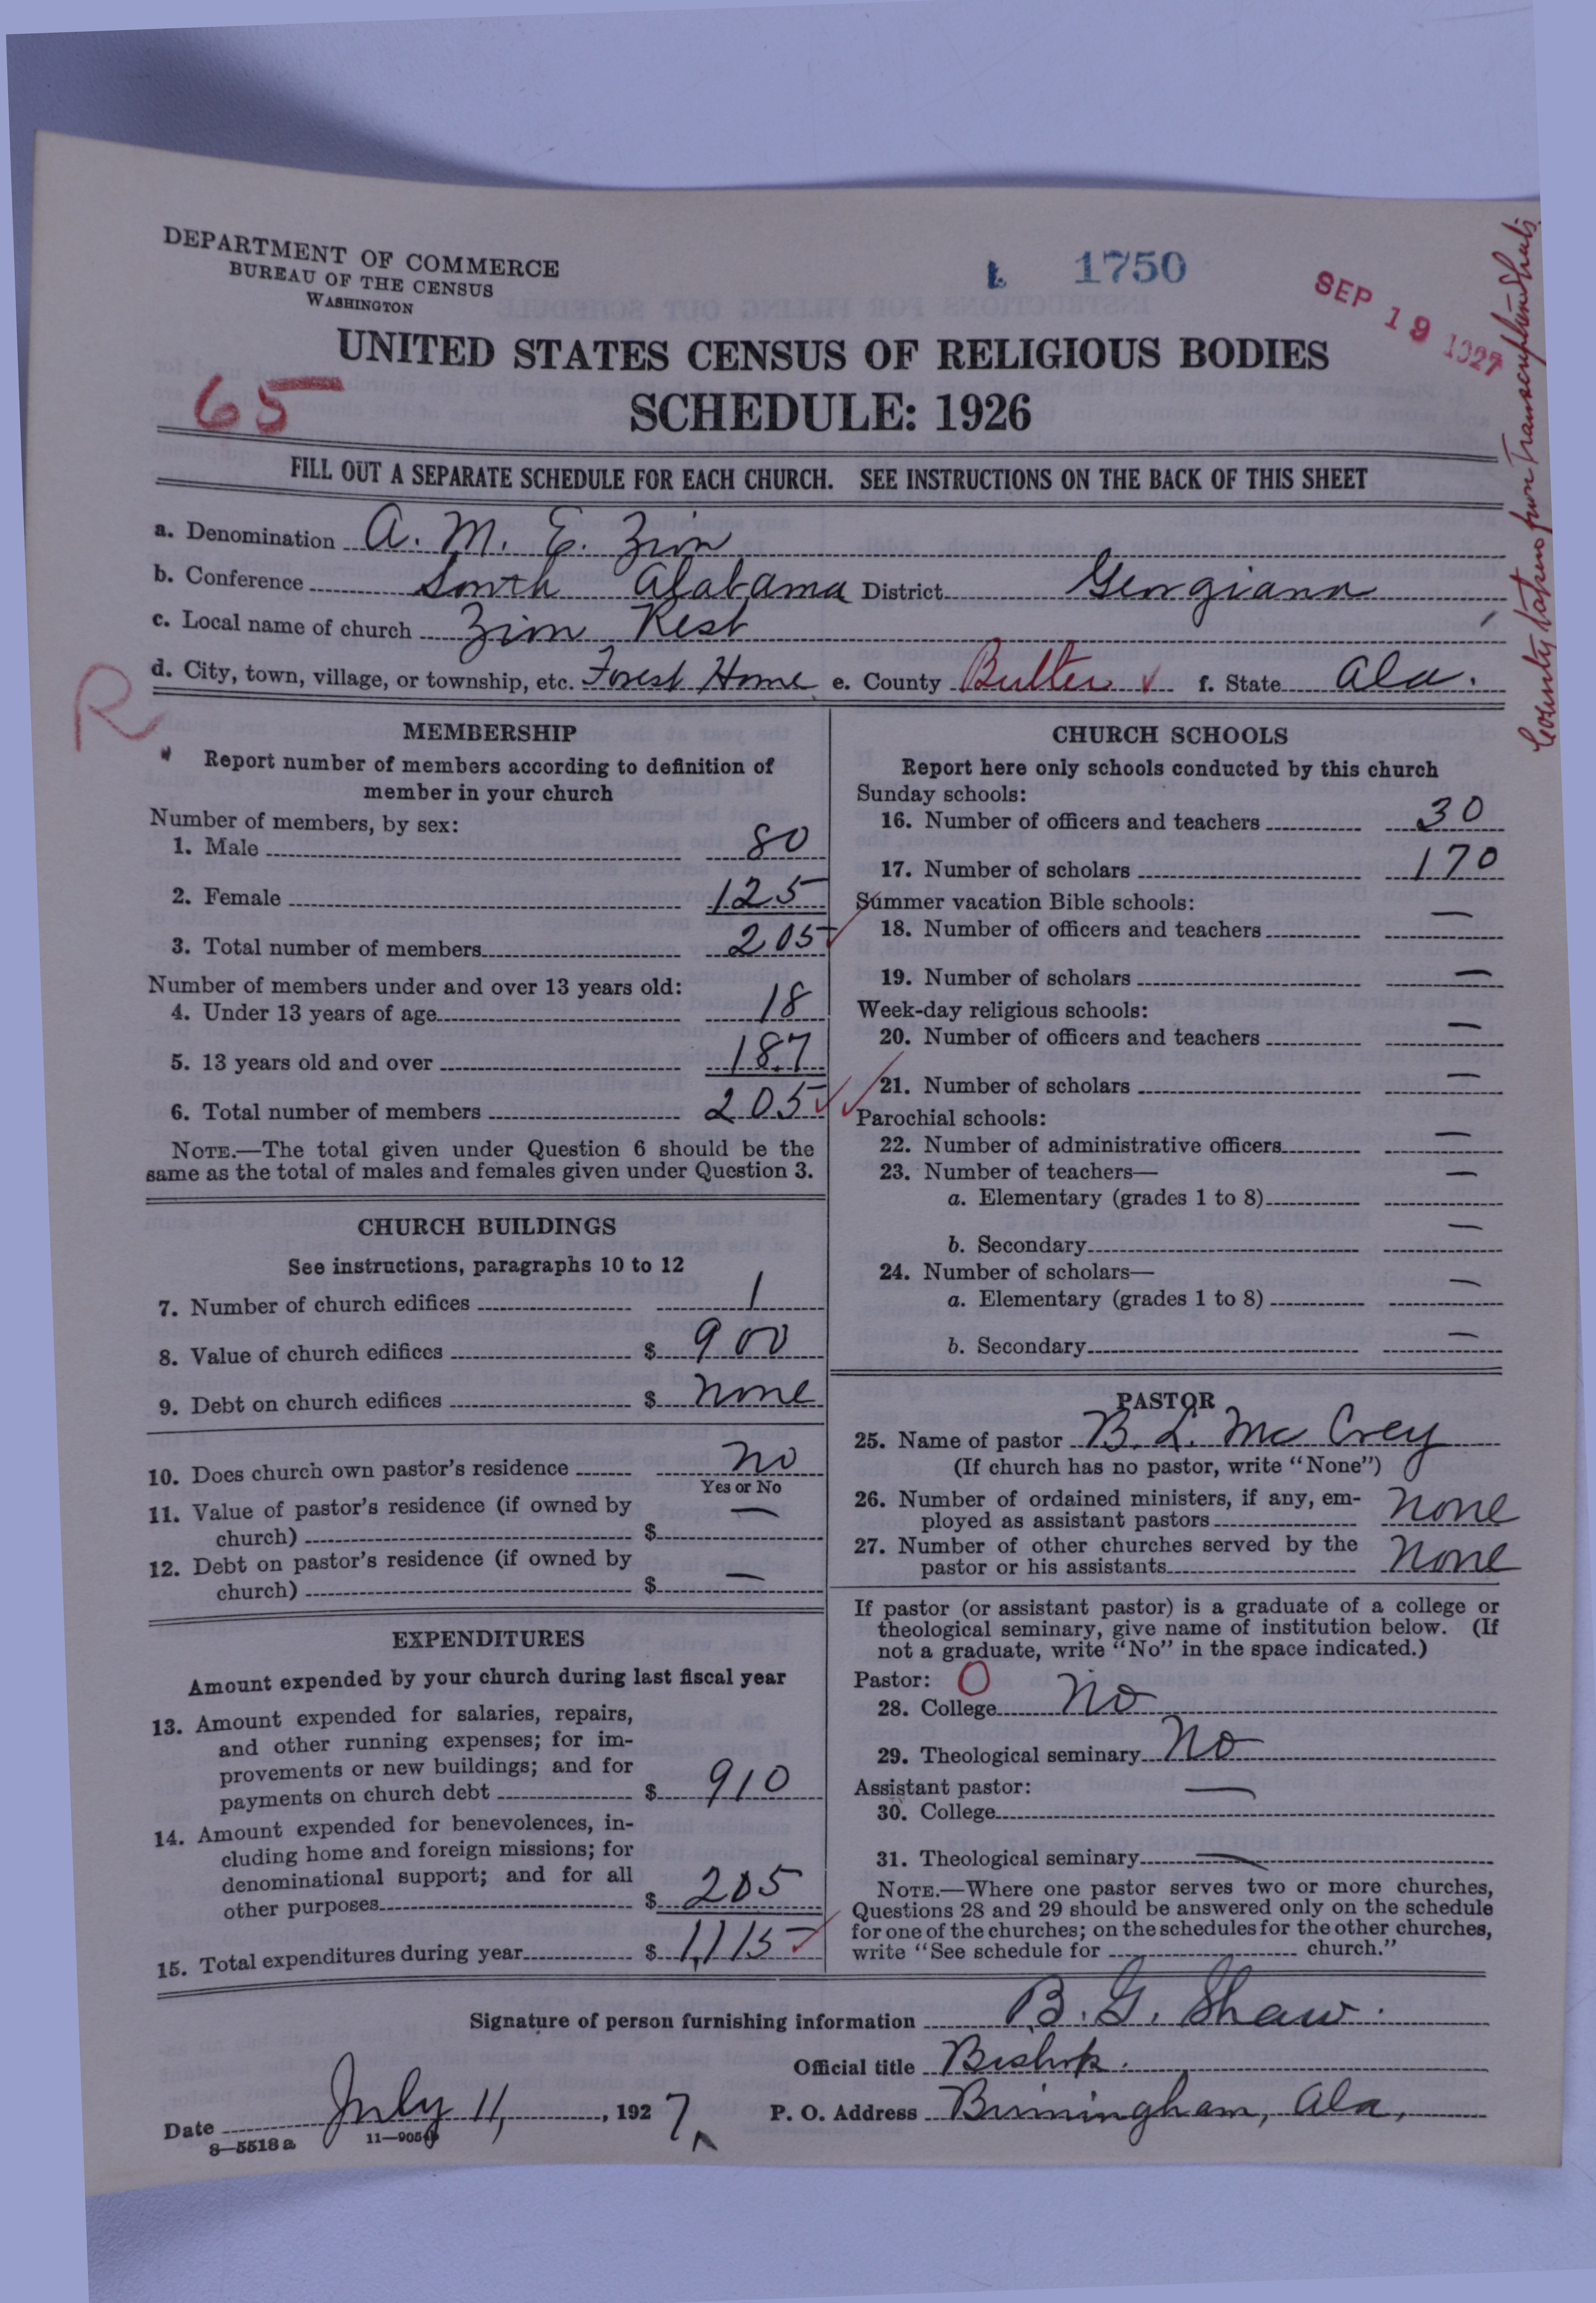 DEPARTMENT OF COMMERCE
BUREAU OF THE CENSUS
WASHINGTON
1750
SEP 19 1927
UNITED STATES CENSUS OF RELIGIOUS BODIES
65
SCHEDULE: 1926
FILL OUT A SEPARATE SCHEDULE FOR EACH CHURCH. SEE INSTRUCTIONS ON THE BACK OF THIS SHEET
County taken from Transcription Sheets
a. Denomination A. M. E. Zion
b. Conference South Alabama District Georgiana
c. Local name of church Zion Rest
d. City, town, village, or township, etc. Forest Home e. County Butler ✓ f. State Ala.
R
MEMBERSHIP
Report number of members according to definition of
member in your church
Number of members, by sex:
1. Male 80
2. Female 125
3. Total number of members 205 ✓
Number of members under and over 13 years old:
4. Under 13 years of age 18
5. 13 years old and over 187
6. Total number of members 205 ✓
NOTE.—The total given under Question 6 should be the
same as the total of males and females given under Question 3.
CHURCH BUILDINGS
See instructions, paragraphs 10 to 12
7. Number of church edifices 1
8. Value of church edifices $ 900
9. Debt on church edifices $ none
10. Does church own pastor's residence no
Yes or No
11. Value of pastor's residence (if owned by
church) $ —
12. Debt on pastor's residence (if owned by
church) $ —
EXPENDITURES
Amount expended by your church during last fiscal year
13. Amount expended for salaries, repairs,
and other running expenses; for im-
provements or new buildings; and for
payments on church debt $ 910
14. Amount expended for benevolences, in-
cluding home and foreign missions; for
denominational support; and for all
other purposes $ 205
15. Total expenditures during year $ 1,115 ✓
CHURCH SCHOOLS
Report here only schools conducted by this church
Sunday schools:
16. Number of officers and teachers 30
17. Number of scholars 170
Summer vacation Bible schools:
18. Number of officers and teachers —
19. Number of scholars —
Week-day religious schools:
20. Number of officers and teachers —
21. Number of scholars —
Parochial schools:
22. Number of administrative officers —
23. Number of teachers—
a. Elementary (grades 1 to 8) —
b. Secondary —
24. Number of scholars—
a. Elementary (grades 1 to 8) —
b. Secondary —
PASTOR
25. Name of pastor B. L. Mc Crey
(If church has no pastor, write "None")
26. Number of ordained ministers, if any, em-
ployed as assistant pastors none
27. Number of other churches served by the
pastor or his assistants none
If pastor (or assistant pastor) is a graduate of a college or
theological seminary, give name of institution below. (If
not a graduate, write "No" in the space indicated.)
Pastor: O
28. College No
29. Theological seminary No
Assistant pastor:
30. College —
31. Theological seminary —
NOTE.—Where one pastor serves two or more churches,
Questions 28 and 29 should be answered only on the schedule
for one of the churches; on the schedules for the other churches,
write "See schedule for church."
Signature of person furnishing information B. G. Shaw.
Official title Bishop.
Date July 11, 1927 P. O. Address Birmingham, Ala,
8—5518 a